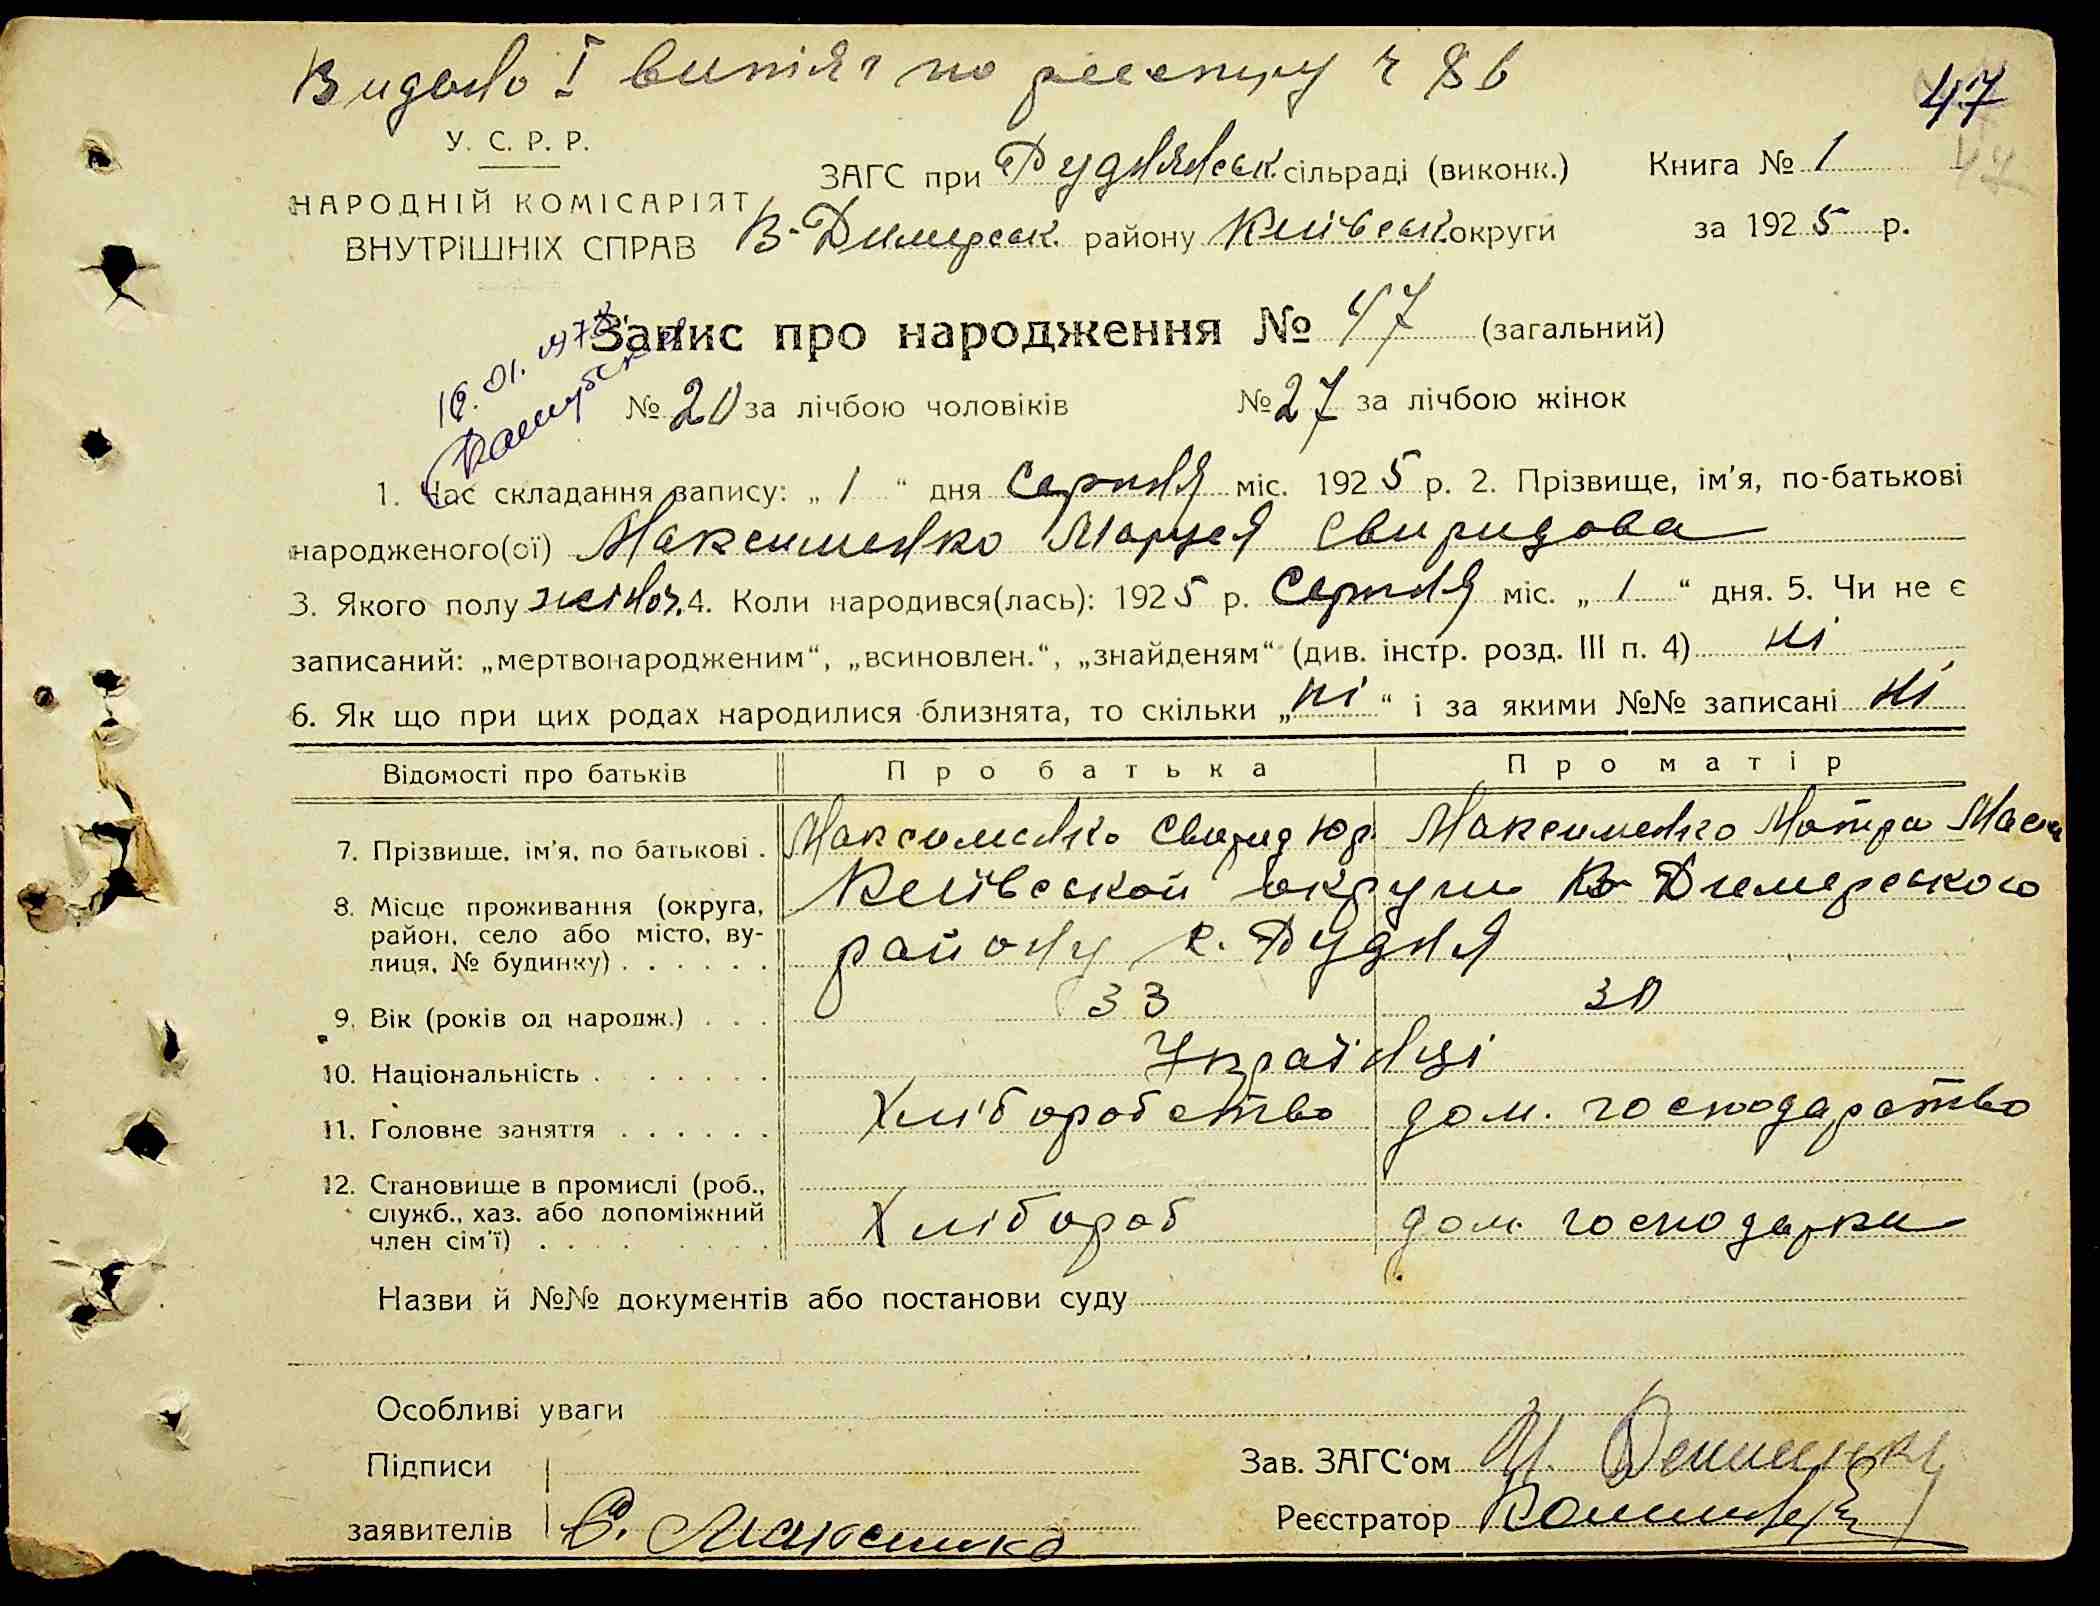 Видано І витяг по реєстру ч 86
47
У. С. Р. Р.
НАРОДНІЙ КОМІСАРІЯТ
ВНУТРІШНІХ СПРАВ
ЗАГС при Руднянськ. сільраді (виконк.) Книга № 1
В-Димерськ. району Київськ. округи за 1925 р.
Запис про народження № 47 (загальний)
16.01.
№ 20 за лічбою чоловіків № 27 за лічбою жінок
1. Час складання запису: „ 1 “ дня Серпня міс. 1925 р. 2. Прізвище, ім'я, по-батькові
народженого(ої) Максименко Маруся Свиридова
3. Якого полу жіноч. 4. Коли народився(лась): 1925 р. Серпня міс. „ 1 “ дня. 5. Чи не є
записаний: „мертвонародженим“, „всиновлен.“, „знайденям“ (див. інстр. розд. III п. 4) ні
6. Як що при цих родах народилися близнята, то скільки „ ні “ і за якими №№ записані ні
Відомості про батьків Про батька Про матір
7. Прізвище, ім'я, по батькові . Максименко Свирид Юр. Максименко Мотря
8. Місце проживання (округа, Київской округи В-Димерського
район, село або місто, ву-
лиця, № будинку) . . . . . . району с. Рудня
9. Вік (років од народж.) . . . 33 30
10. Національність . . . . . . . Українці
11. Головне заняття . . . . . . Хліборобство дом. господарство
12. Становище в промислі (роб.,
служб., хаз. або допоміжний Хлібороб дом. господарки
член сім'ї) . . . . . . . . .
Назви й №№ документів або постанови суду
Особливі уваги
Підписи Зав. ЗАГС'ом
заявителів С. Реєстратор